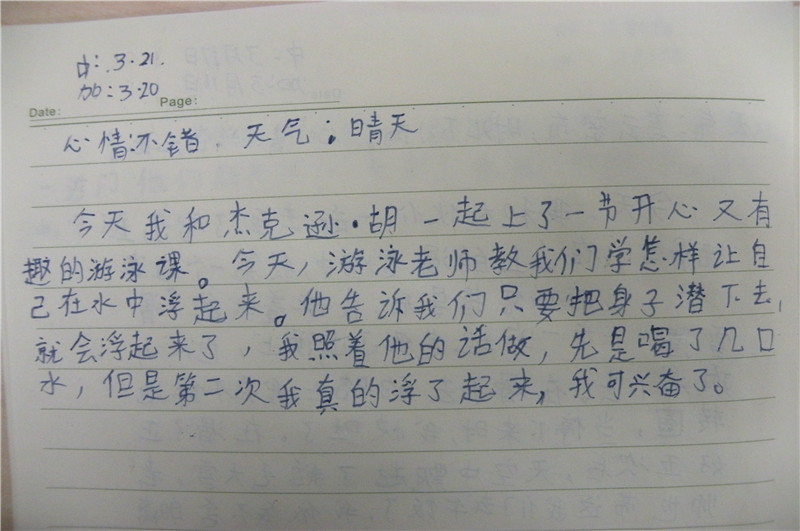 中:3.21.
加:3.20
Date: Page:
心情:不错. 天气:晴天
今天我和杰克逊·胡一起上了一节开心又有
趣的游泳课。今天,游泳老师教我们学怎样让自
己在水中浮起来。他告诉我们只要把身子潜下去,
就会浮起来了,我照着他的话做,先是喝了几口
水,但是第二次我真的浮了起来,我可兴奋了。